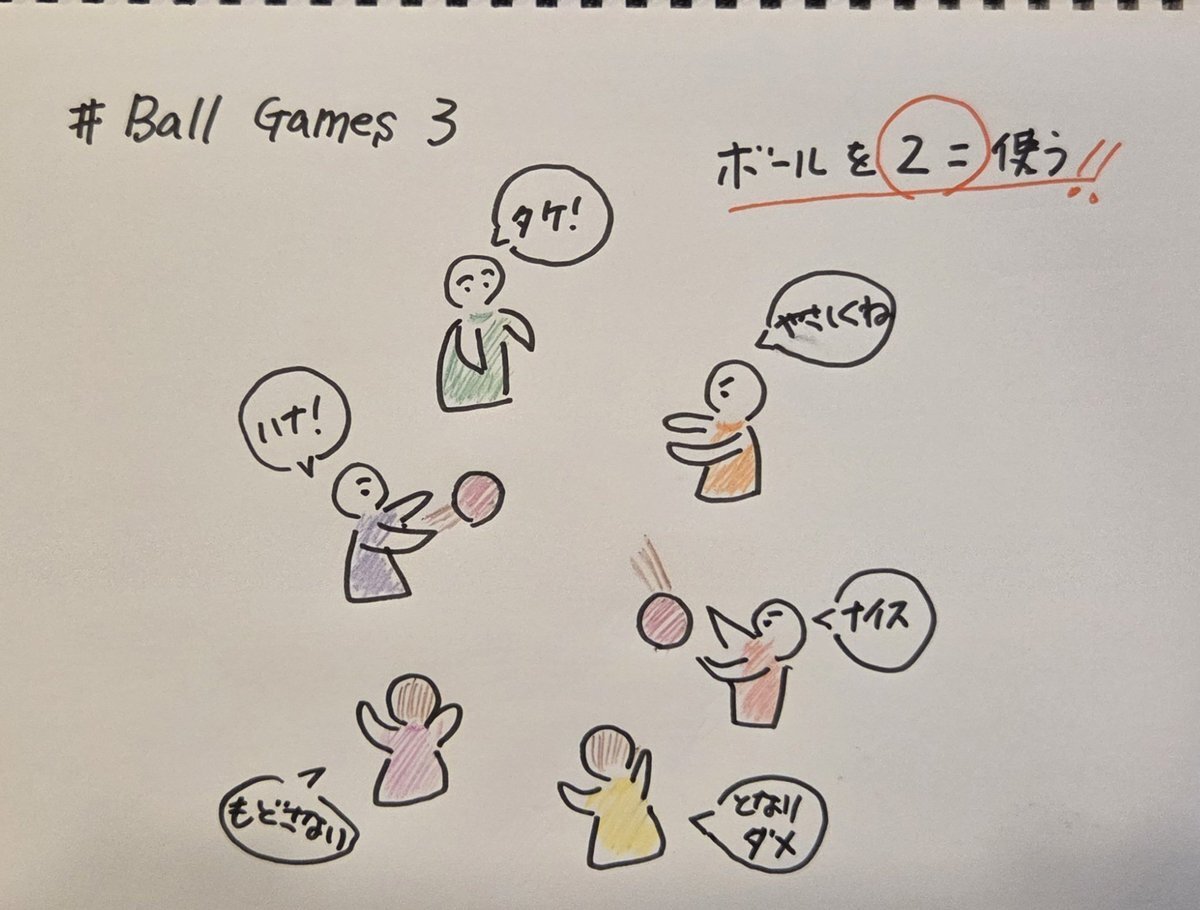 # Ball Games 3
ボールを2コ使う!!
タケ!
やさしくね
ハナ!
ナイス
もどさない
となり
ダメ